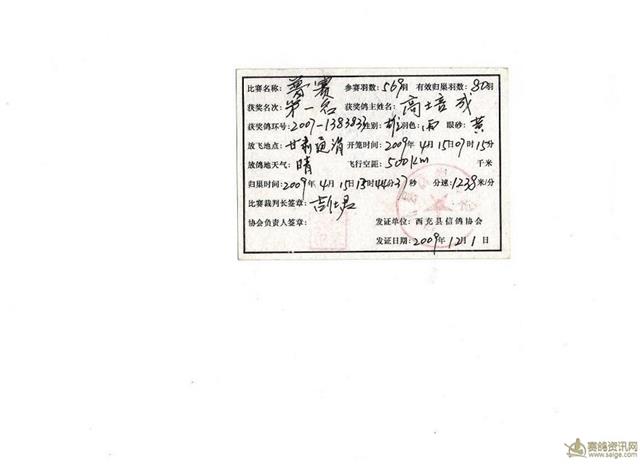 比赛名称: 普赛 参赛羽数: 569羽 有效归巢羽数: 80羽
获奖名次: 第一名 获奖鸽主姓名: 高士培
获奖鸽环号: 2007-138383 性别: 雄 羽色: 雨 眼砂: 黄
放飞地点: 甘肃通渭 开笼时间: 2009年4月15日07时15分
放鸽地天气: 晴 飞行空距: 500km 千米
归巢时间2009年4月15日13时44分37秒 分速: 1238米/分
比赛裁判长签章: 吉仕君
协会负责人签章: 发证单位: 西充县信鸽协会
发证日期: 2009年12月1日
赛鸽资讯网
www.saige.com